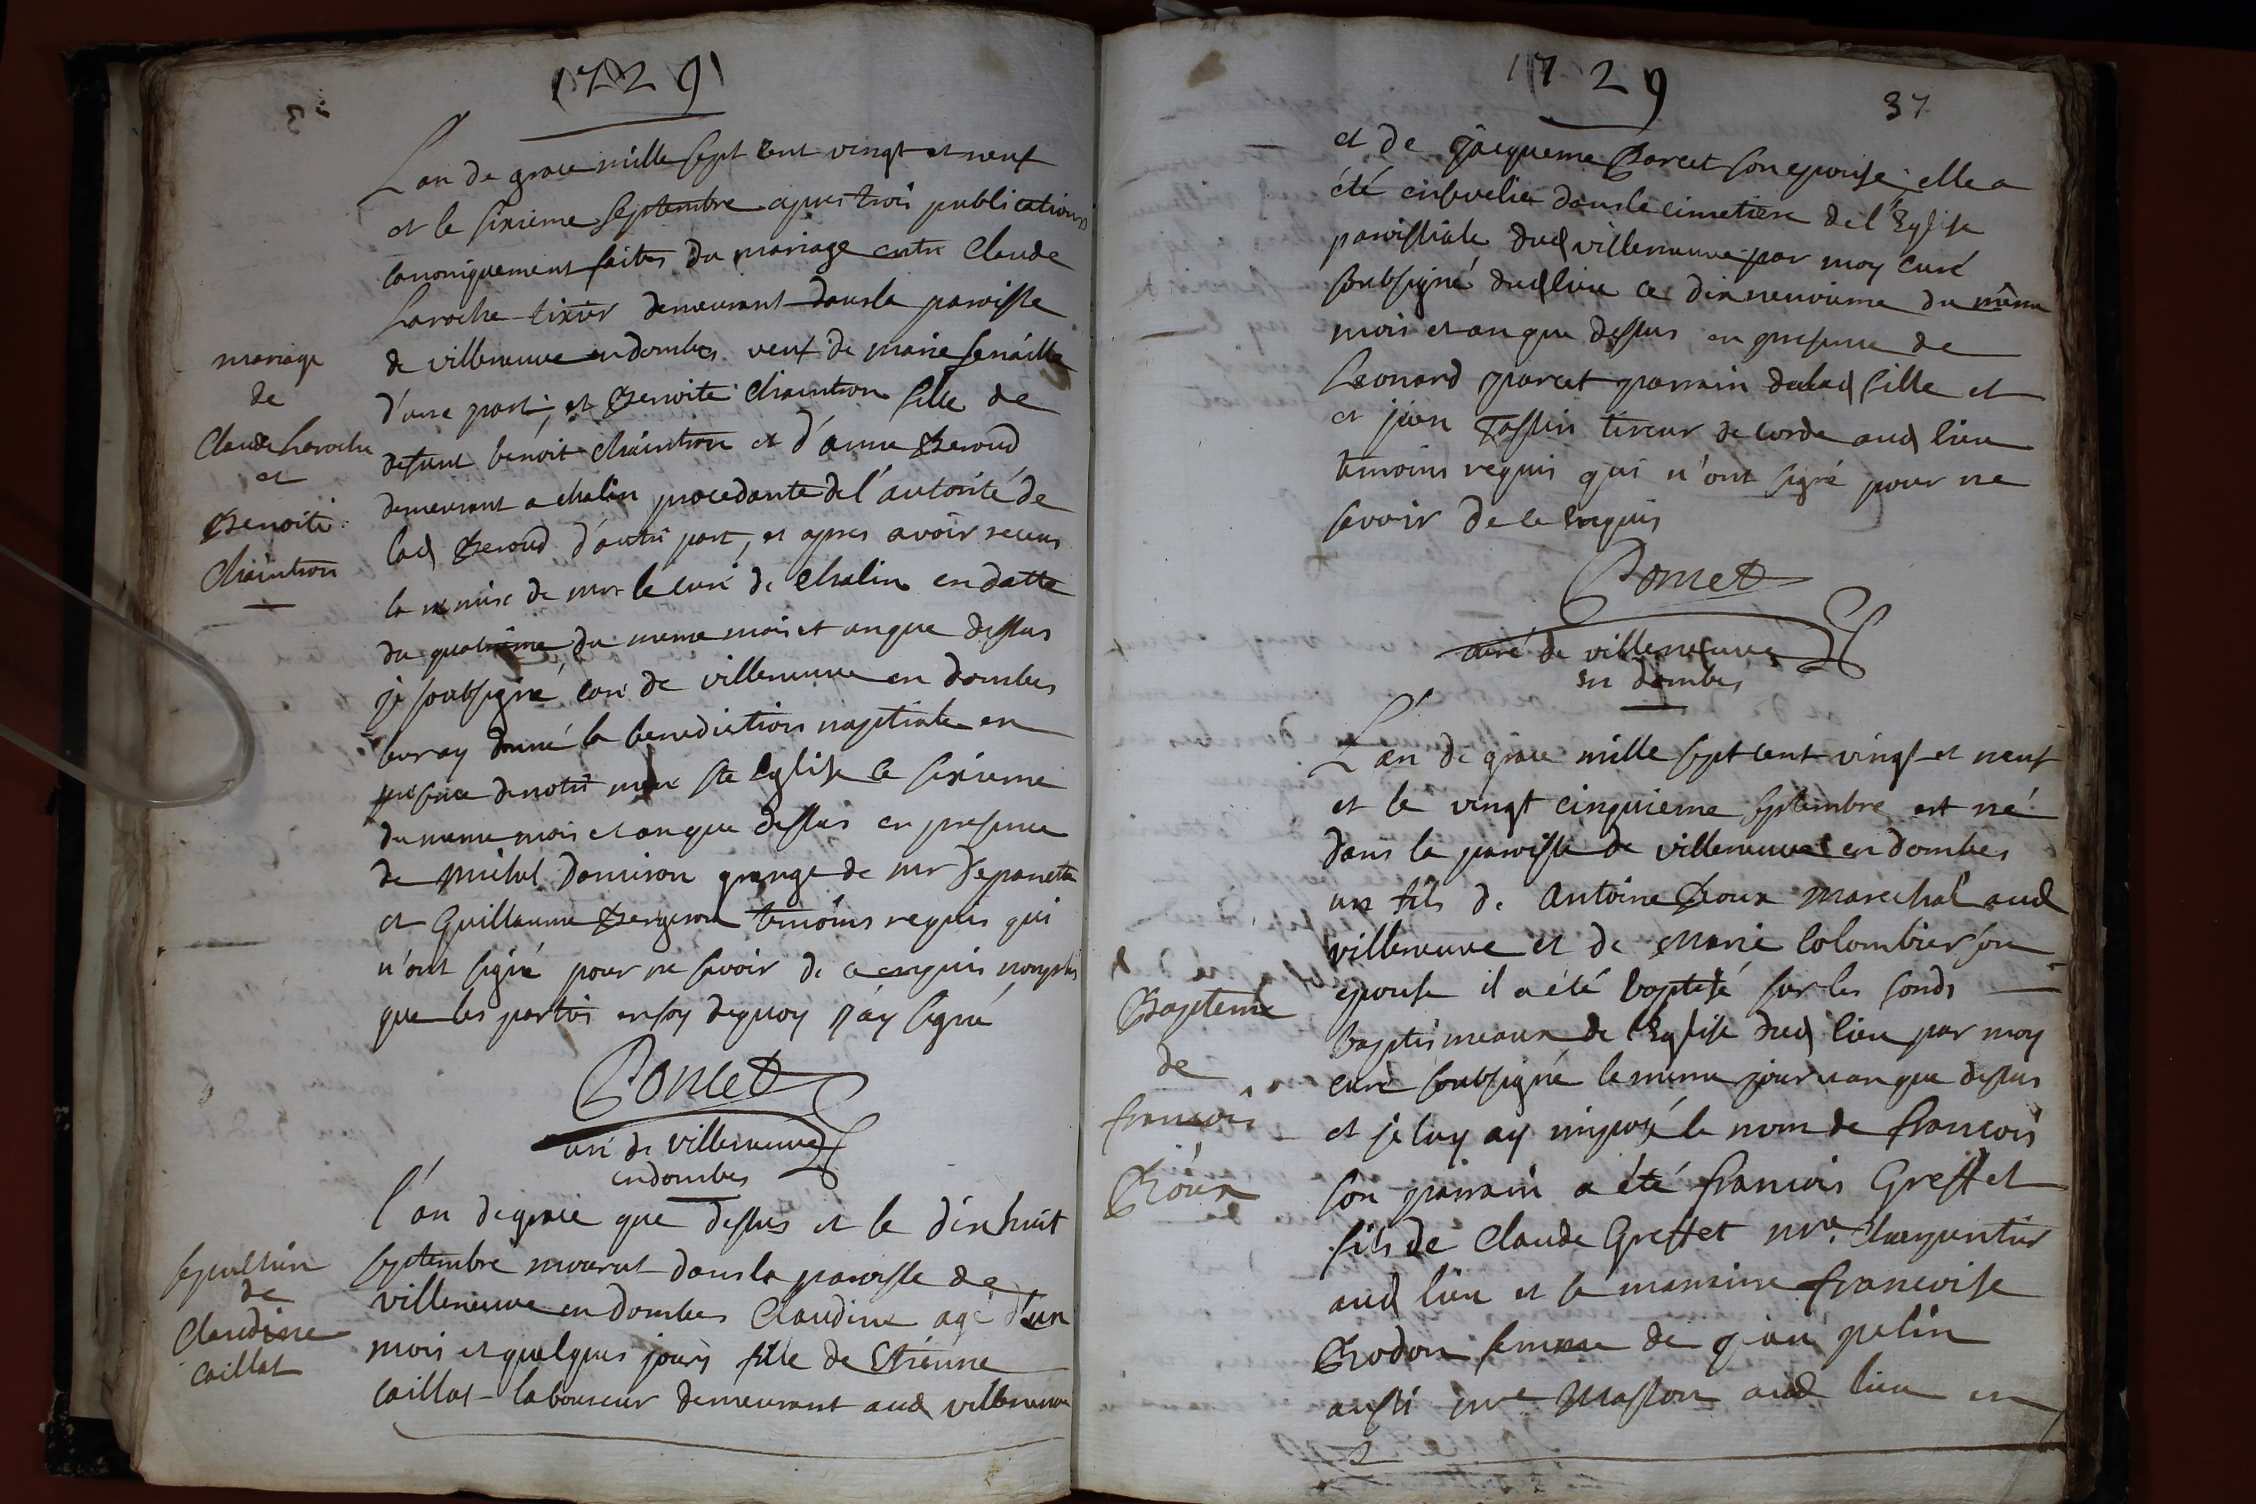 1729
L'an de grace mille sept cent vingt et neuf
et le sixieme septembre apres trois publications
canoniquement faites du mariage entre Claude
Laroche tixier demeurant dans la paroisse
de villeneuve en dombes veuf de marie senaille
d'une part, et Benoite Chaintron fille de
defunt benoit Chaintron et d'anne Beroud
demeurant a chalin procedante de l'autorité de
lad Beroud d'autre part, et apres avoir receus
la remise de mr le curé de Chalin en datte
du quatrieme du meme mois et an que dessus
je soubsigné curé de villeneuve en dombes
leur ay donné la benediction nuptiale en
presence de notre mere ste Eglise ce sixieme
du meme mois et an que dessus en presence
de Michel Damiron grange de mr
et Guillaume temoins requis qui
n'ont signé pour ne savoir de ce enquis non plus
que les parties en foy dequoy j'ay signé
Poncet
curé de villeneuve
en dombes
mariage
de
Claude Laroche
et
Benoite
Chaintron
l'an de grace que dessus et le dixhuit
septembre mourut dans la paroisse de
villeneuve en dombes Claudine agé d'un
mois et quelques jours fille de Etienne
Caillat laboureur demeurant aud villeneuve
sepulture
de
Claudine
Caillat
1729
37
et de Jacqueme Parcet son epouse elle a
été ensevelie dans le cimetiere de l'Eglise
paroissiale dud villeneuve par moy curé
soubsigné dud lieu ce dix neuvieme du même
mois et an que dessus en presence de
Leonard parcet parrain de lad fille et
et jean Tassin tireur de corde aud lieu
temoins requis qui n'ont signé pour ne
savoir de ce enquis
Poncet
curé de villeneuve
en dombes
L'an de grace mille sept cent vingt et neuf
et le vingt cinquieme septembre est né
dans la paroisse de villeneuve en dombes
un fils de Antoine Roux marechal aud
villeneuve et de Marie Colombier son
epouse il a été baptisé sur les fonds
baptismeaux de l'Eglise dud lieu par moy
curé soubsigné le meme jour et an que dessus
et je luy ay imposé le nom de francois
son parrain a été francois Greffet
fils de Claude Greffet mre Charpentier
aud lieu et sa marraine francoise
Rodon femme de jean pelin
aussi mre Masson aud lieu en
Bapteme
de
francois
Roux